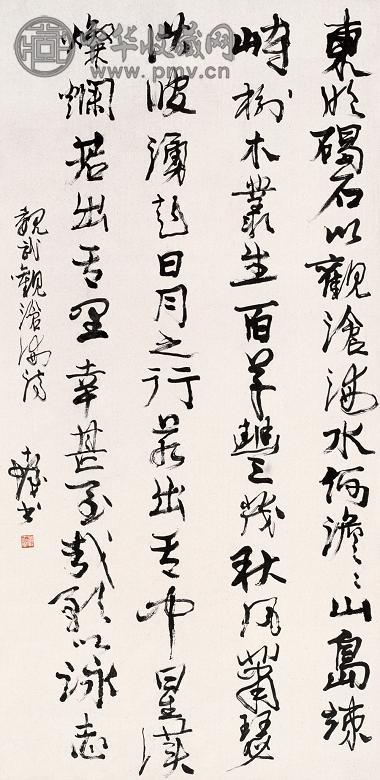 华收藏网
www.pmv.cn
東臨碣石以觀滄海水何澹〻山島竦
峙樹木叢生百草豐茂秋風蕭瑟
洪波湧起日月之行若出其中星漢
燦爛若出其里幸甚至哉歌以詠志
魏武觀滄海詩
書